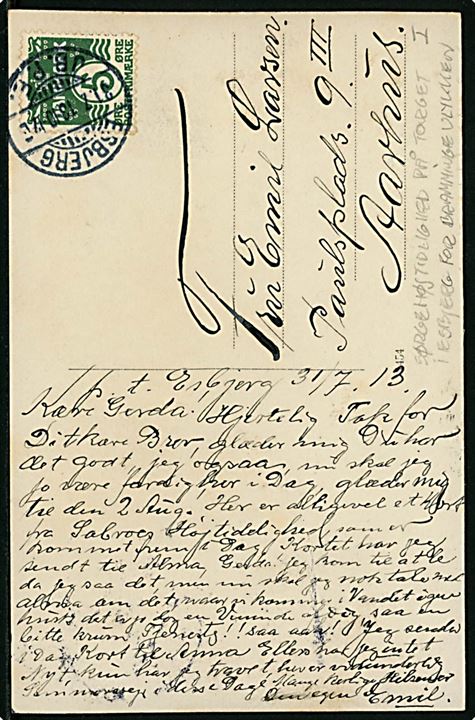 ØRE
ØRE
ESBJERG
JB. P.E.
Fru Emil Larsen.
Paulsplads. 9 III
Aarhus.
SØRGEHØJTIDLIGHED PÅ TORGET I
ESBJERG FOR BRAMMINGEULYKKEN
p. t. Esbjerg 31/7. 13.
Kære Gerda. Hjertelig Tak for
Dit kære Brev, glæder mig Du har
det godt, jeg ogsaa, nu skal jeg
jo være færdig her i Dag, glæder mig
til den 2 Aug. Her er alligevel et Kort
fra Sabroes Højtiddelighed som er
kommit frem i Dag Kortet har jeg
sendt til Alma, Gerda jeg kom til at le
da jeg saa det men nu skal jeg nok tale
Alma om det naar vi kommer i Vandet igen
husk det er jo for en Kvinde a dig saa en
lille krum! saa aa!! Jeg sender
i Dag Kort til Anna Ellers har jeg intet
Nyt kun har jeg travlt
i disse Dage Mange kærlige Hilsener
Din egen Emil.